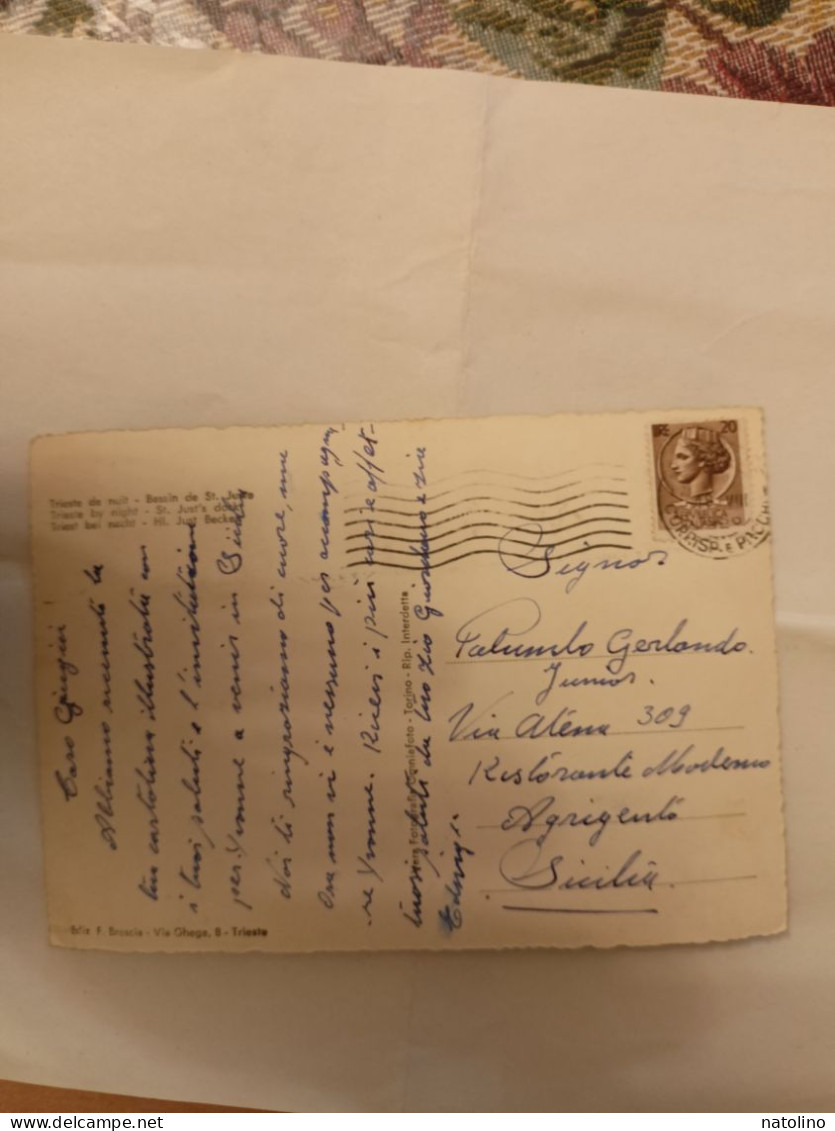 Trieste de nuit - Bassin de St. Juste
Trieste by night - St. Just's dock
Triest bei nacht - Hl. Just Becken
Caro Giugiù!
Abbiamo ricevuto la
tua cartolina illustrata con
i tuoi saluti e l'invitation
per Yvonne a venir in Sicilia
Noi ti ringraziamo di cuore, ma
ora non vi è nessuno per accompagna-
re Yvonne. Ricevi i più cari e affet-
tuosi saluti da tuo zio Giordano e zia
Edvige
Ediz. F. Brescia - Via Ghega, 8 - Trieste
- Torino - Rip. Interdetta
LIRE 20
CORRISP. E PACCHI
Signor
Palumbo Gerlando
Junior.
Via Atena 309
Ristorante Moderno
Agrigento
Sicilia
natolino